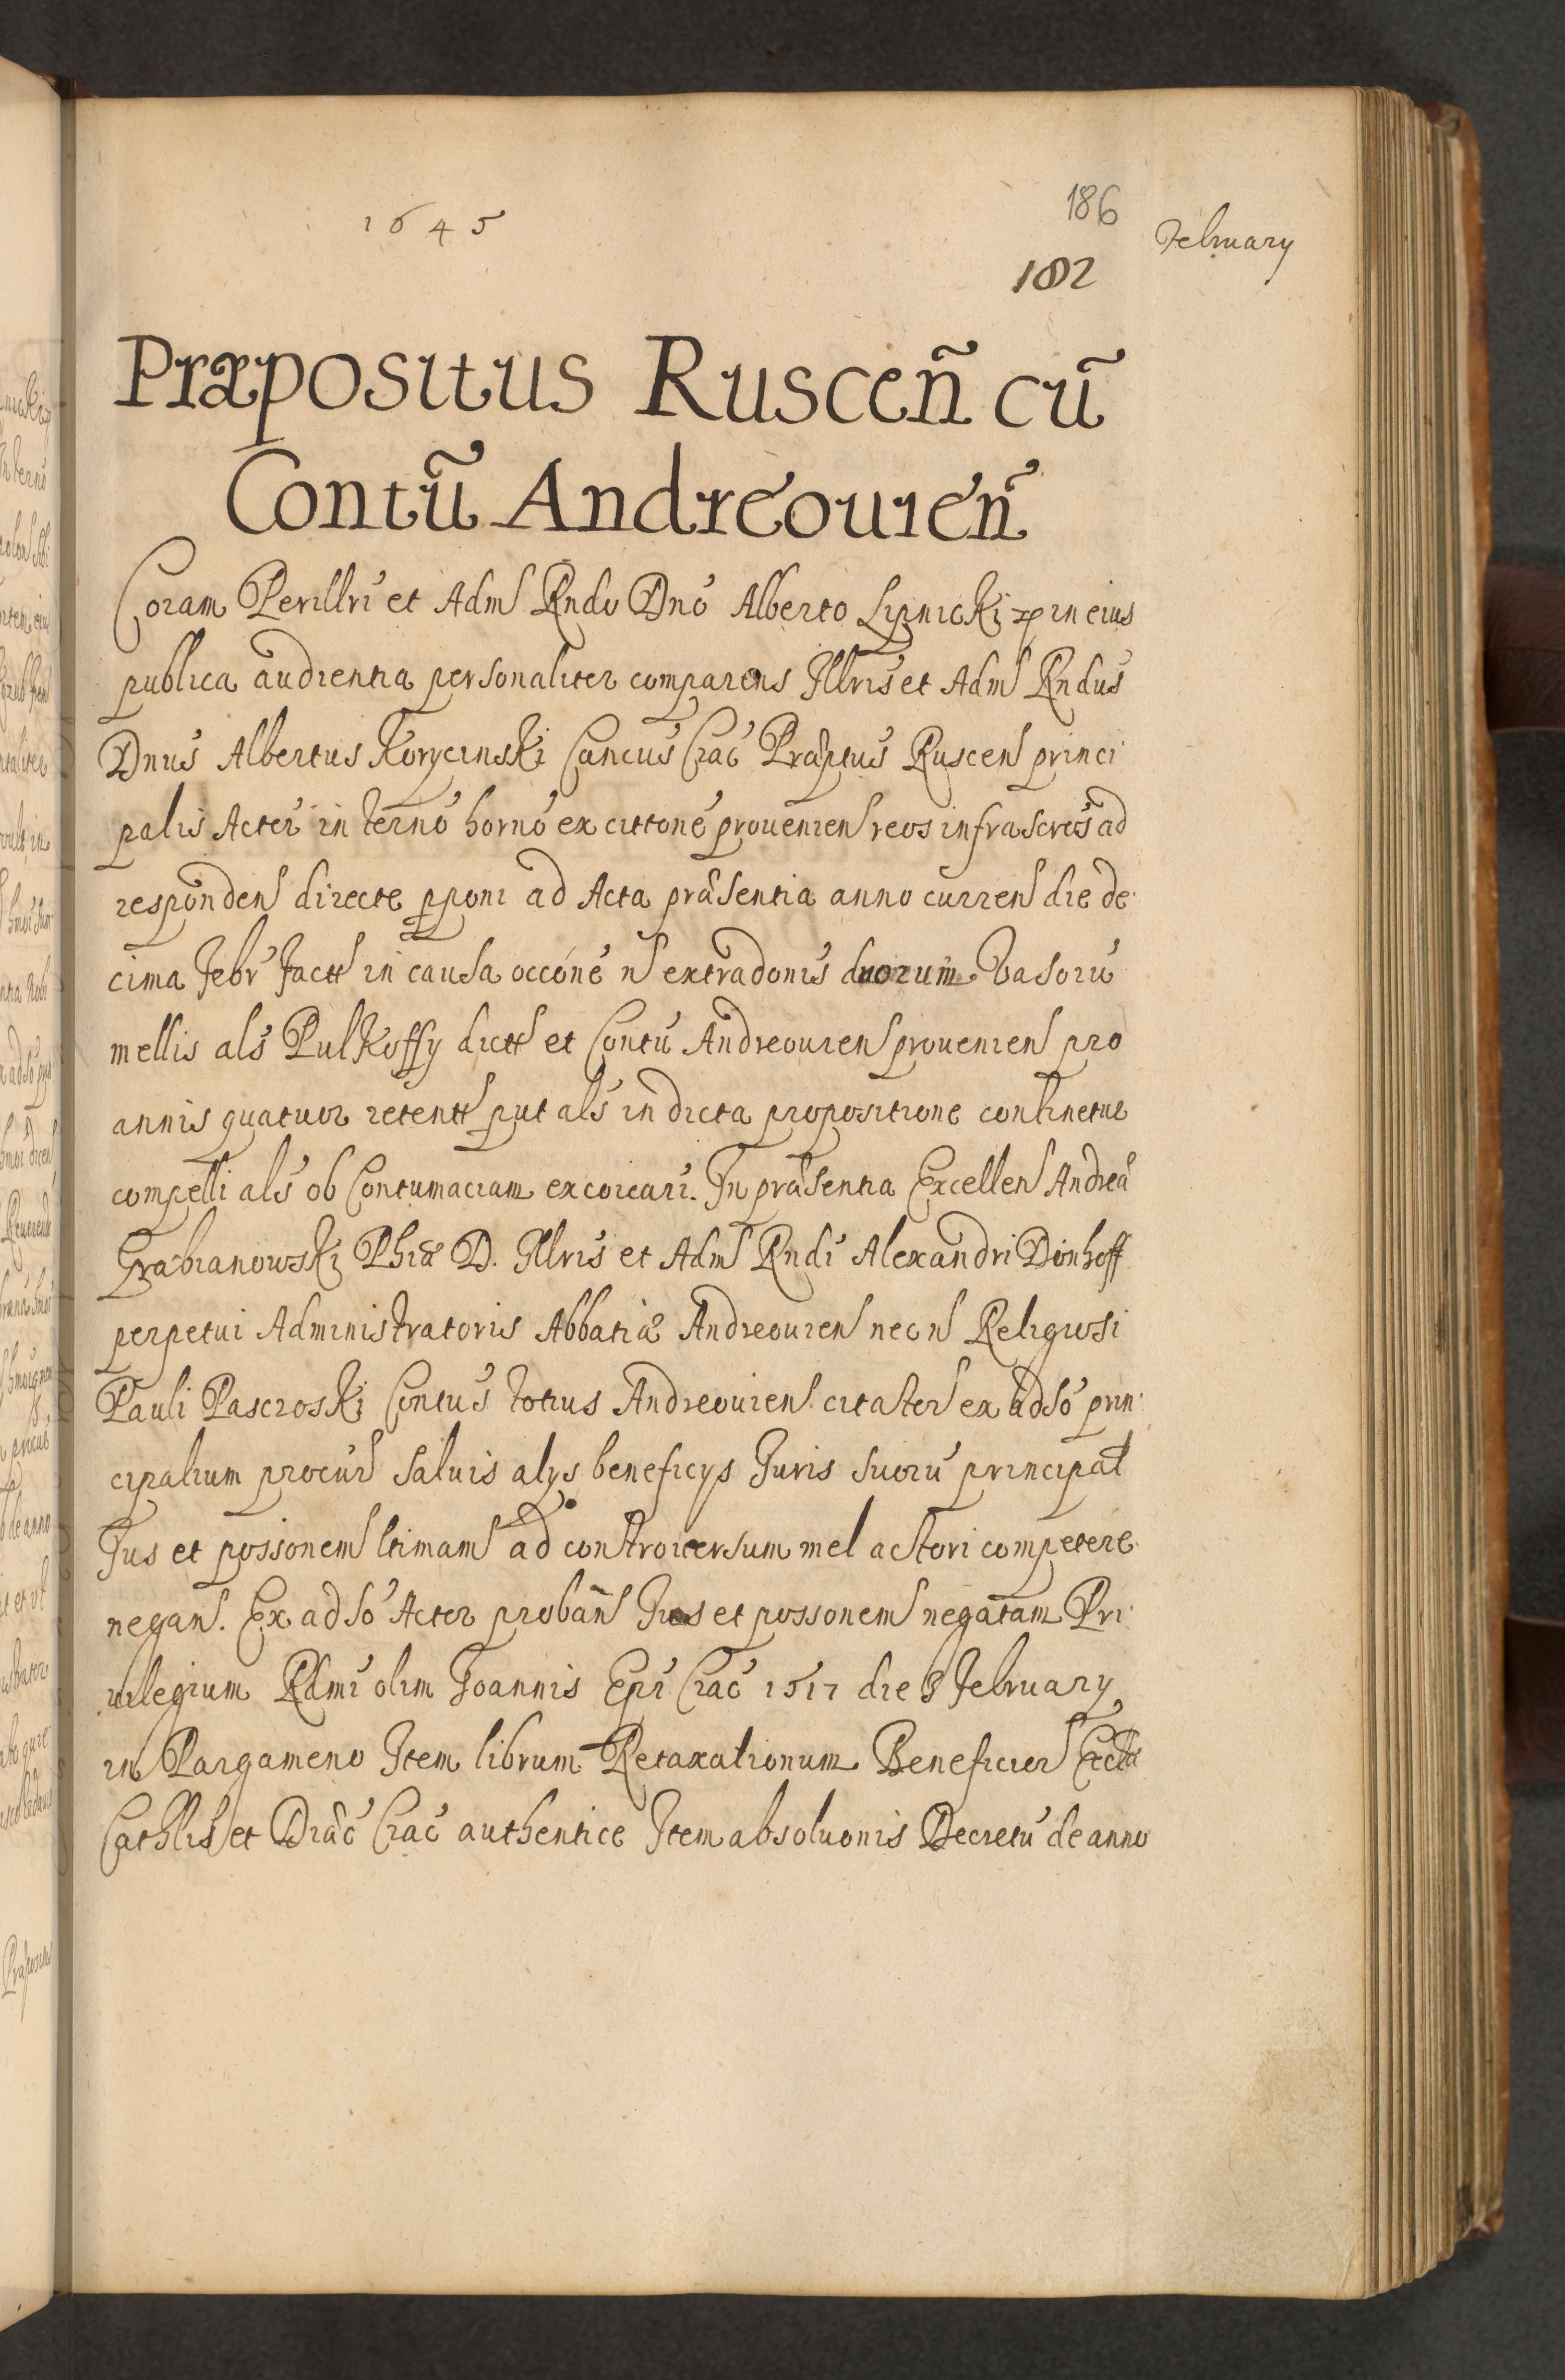 1645
186
February
182
Præpositus Ruscen̄ cū
Contū Andreouien̄
Coram Perillri et Adm Rndo Dno Alberto Lipnicki in eius
publica audientia personaliter comparens Illris et Adm Rndus
Dnus Albertus Korycinski Cancus Crac Præptus Ruscen princi
palis Acter in terno horno ex cittone prouenien reos infrascrs ad
responden directe pponi ad Acta præsentia anno curren die de
cima Febr factt in causa occone n extradonis duorum Vasorū
mellis als Pulkoffy dictt et Contū Andreouien prouenien pro
annis quatuor retentt put als in dicta propositione continetur
compelli als ob Contumaciam excoicari. In præsentia Excellen Andreæ
Grabianowski Phiæ D. Illris et Adm Rndi Alexandri Dönhoff
perpetui Administratoris Abbatiæ Andreouien necn Religiosi
Pauli Pascroski Contus totius Andreouien citator ex adso prin
cipalium procur saluis alys beneficys Juris suorū principal
Jus et possionem ltimam ad controuersum mel actori competere
negan. Ex adso Acter proban̄ Jus et possonem negatam Pri
uilegium Rdmi olim Joannis Epi Crac 1517 die 8 February
in Pargameno Item librum Retaxationum Beneficior Eccla
Cathlis et Diæc Crac authentice Item absoluonis Decretū de anno